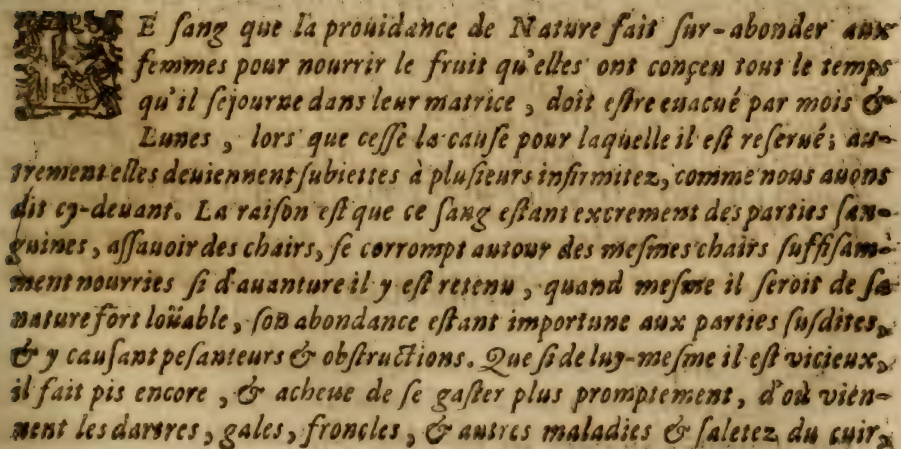 LE ſang que la prouidance de Nature fait ſur-abonder aux
femmes pour nourrir le fruit qu'elles ont conçeu tout le temps
qu'il ſejourne dans leur matrice, doit eſtre euacué par mois &
Lunes, lors que ceſſe la cauſe pour laquelle il eſt reſerué; au-
trement elles deuiennent ſubiettes à pluſieurs infirmitez, comme nous auons
dit cy-deuant. La raiſon eſt que ce ſang eſtant excrement des parties ſan-
guines, aſſauoir des chairs, ſe corrompt autour des meſmes chairs ſuffiſam-
ment nourries ſi d'auanture il y eſt retenu, quand meſme il ſeroit de ſa
nature fort loüable, ſon abondance eſtant importune aux parties ſuſdites,
& y cauſant peſanteurs & obſtructions. Que ſi de luy-meſme il eſt vicieux,
il fait pis encore, & acheue de ſe gaſter plus promptement, d'où vien-
nent les dartres, gales, froncles, & autres maladies & ſaletez du cuir,